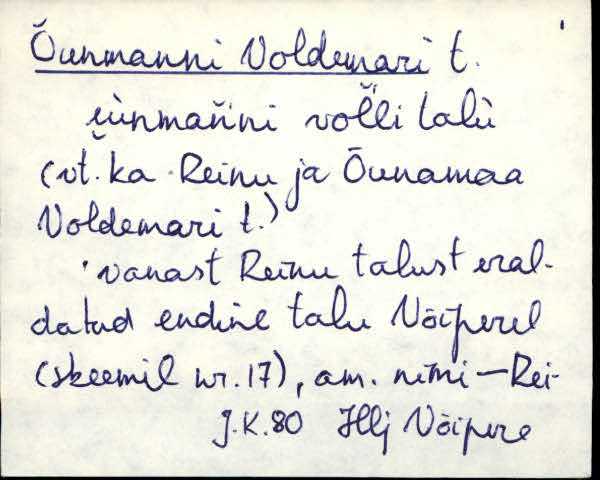 Õunmanni Voldemari t.
e̮ùnmańni volli talù
(vt. ka Reinu ja Õunamaa
Voldemari t.)
vanast Reinu talust eral-
datud endine talu Võiperel
(skeemil nr. 17), am. nimi — Rei-
J.K.80 Hlj Võipere